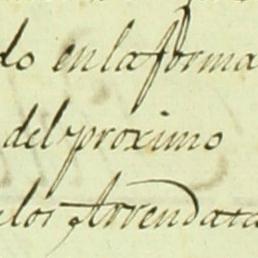 do en la forma
del proximo
los Arrendata